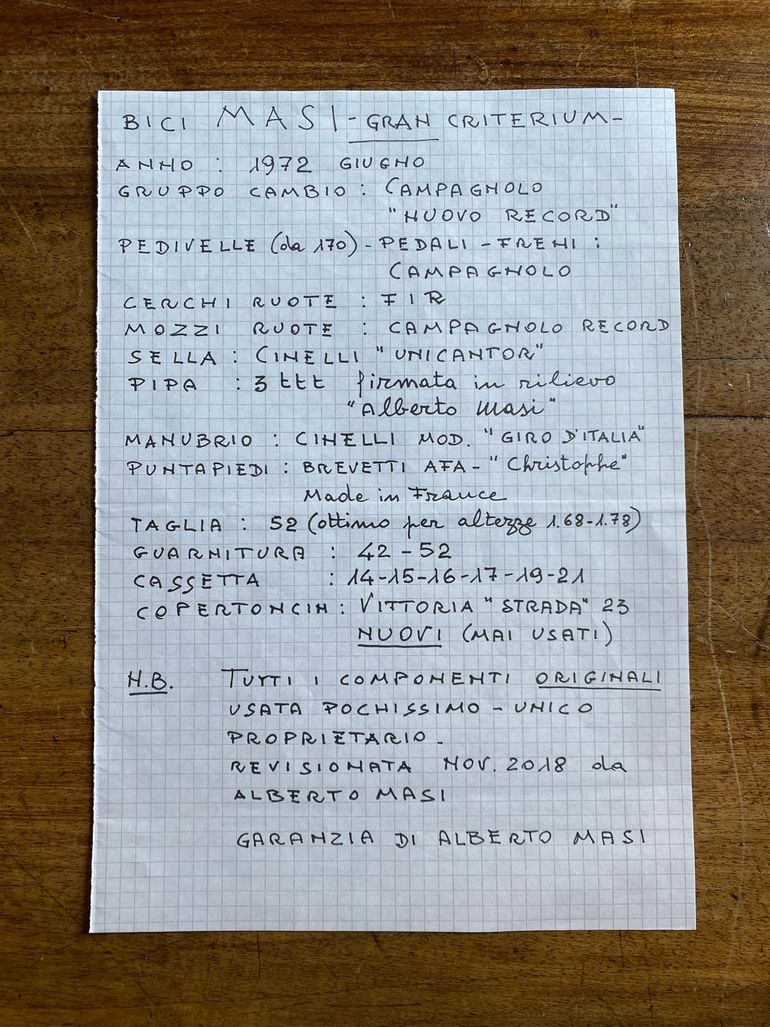 BICI MASI - GRAN CRITERIUM -
ANNO : 1972 GIUGNO
GRUPPO CAMBIO : CAMPAGNOLO
"NUOVO RECORD"
PEDIVELLE (da 170) - PEDALI - FRENI :
CAMPAGNOLO
CERCHI RUOTE : FIR
MOZZI RUOTE : CAMPAGNOLO RECORD
SELLA : CINELLI "UNICANTOR"
PIPA : 3 ttt firmata in rilievo
"Alberto Masi"
MANUBRIO : CINELLI MOD. "GIRO D'ITALIA"
PUNTAPIEDI : BREVETTI AFA - "Christophe"
Made in France
TAGLIA : 52 (ottimo per altezze 1.68-1.78)
GUARNITURA : 42 - 52
CASSETTA : 14-15-16-17-19-21
COPERTONCIN : VITTORIA "STRADA" 23
NUOVI (MAI USATI)
N.B. TUTTI I COMPONENTI ORIGINALI
USATA POCHISSIMO - UNICO
PROPRIETARIO -
REVISIONATA NOV. 2018 da
ALBERTO MASI
GARANZIA DI ALBERTO MASI